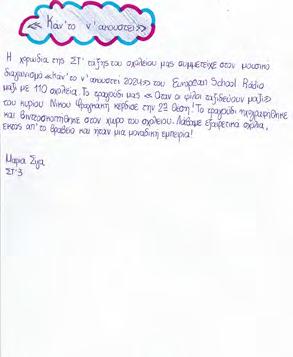 «Κάν'το ν'ακουστεί»
Η χορωδία της ΣΤ' τάξης του σχολείου μας συμμετείχε στον μουσικό
διαγωνισμό «Κάν'το ν'ακουστεί 2024» του European School Radio
μαζί με 110 σχολεία. Το τραγούδι μας «Όταν οι φίλοι ταξιδεύουν μαζί»
του κυρίου Νίκου κέρδισε την 2η θέση! Το τραγούδι ηχογραφήθηκε
και βιντεοσκοπήθηκε στον χώρο του σχολείου. Λάβαμε εξαιρετικά σχόλια,
εκτός απ'το βραβείο και ήταν μια μοναδική εμπειρία!
Μαρία
ΣΤ'3